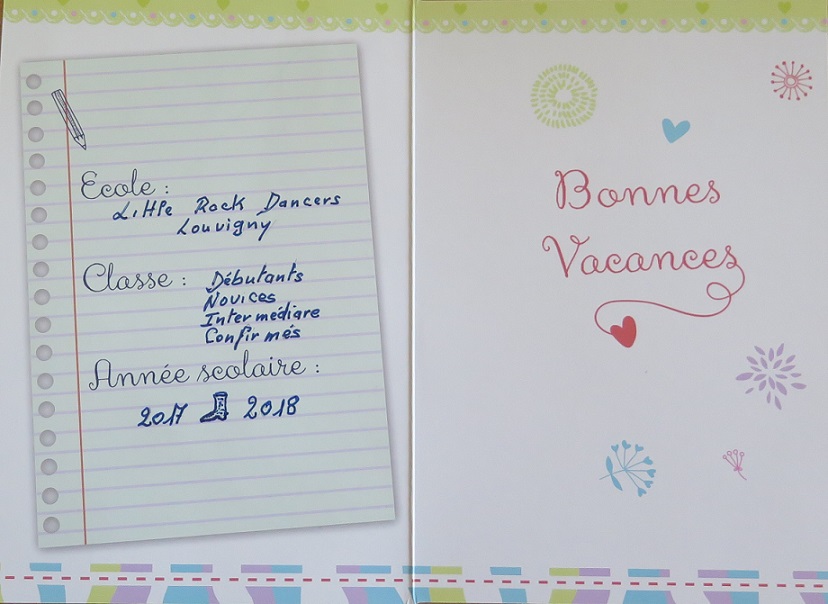 Ecole :
Little Rock Dancers
Louvigny
Classe : Débutants
Novices
Intermédiare
Confirmés
Année scolaire :
2017 2018
Bonnes
Vacances